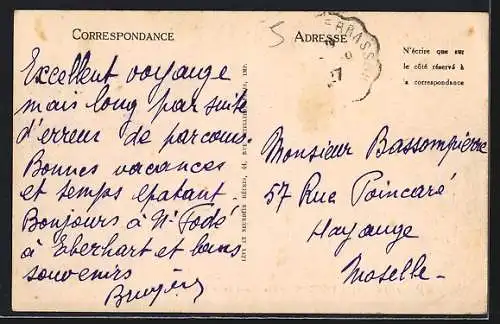 CORRESPONDANCE
Excellent voyange
mais long par suite
d'erreur de parcours.
Bonnes vacances
et temps épatant
Bonjours à Mr Todé
à Eberhart et bons
souvenirs
Bruyère
LÉVY ET NEURDEIN RÉUNIS, 44, RUE LETELLIER, PARIS, IMP.
5
ADRESSE
27
N'écrire que sur
le côté réservé à
la correspondance
Monsieur Bassompierre
57 Rue Poincaré
Hayange
Moselle-